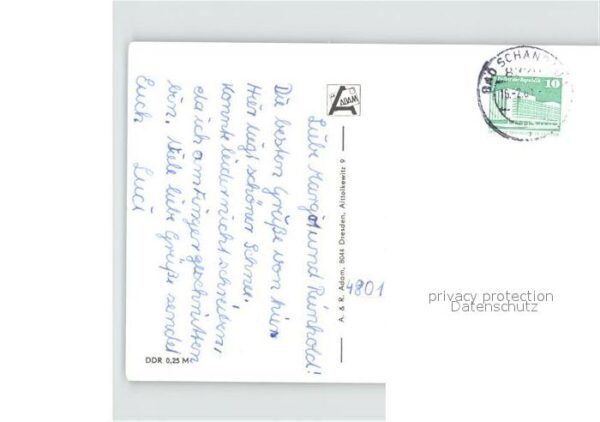 Liebe Margot und Reinhold!
Die besten Grüße von hier
Hier liegt schöner Schnee.
Konnte leider nicht schreiben,
da ich am Finger geschnitten
bin. Viele liebe Grüße sendet
Euch Luci
ADAM
A. & R. Adam, 8044 Dresden, Alttolkewitz 9
4801
DDR 0,25 M
BAD SCHAN
10
privacy protection
Datenschutz